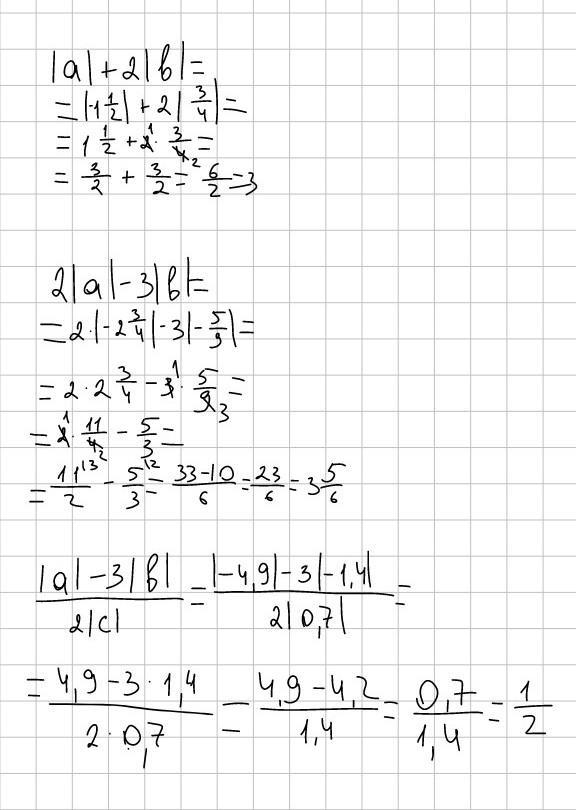 |a| + 2|b| =
= |-1 1/2| + 2| 3/4 | =
= 1 1/2 + 2 1 · 3/4 2 =
= 3/2 + 3/2 = 6/2 = 3
2|a| - 3|b| =
= 2 · |-2 3/4| - 3|- 5/9| =
= 2 · 2 3/4 - 3 1 · 5/9 3 =
= 2 1 · 11/4 2 - 5/3 =
= 11/2 |3 - 5/3 |2 = 33-10/6 = 23/6 = 3 5/6
|a| - 3|b| / 2|c| = |-4,9| - 3|-1,4| / 2|0,7| =
= 4,9 - 3 · 1,4 / 2 · 0,7 = 4,9 - 4,2 / 1,4 = 0,7 / 1,4 = 1/2